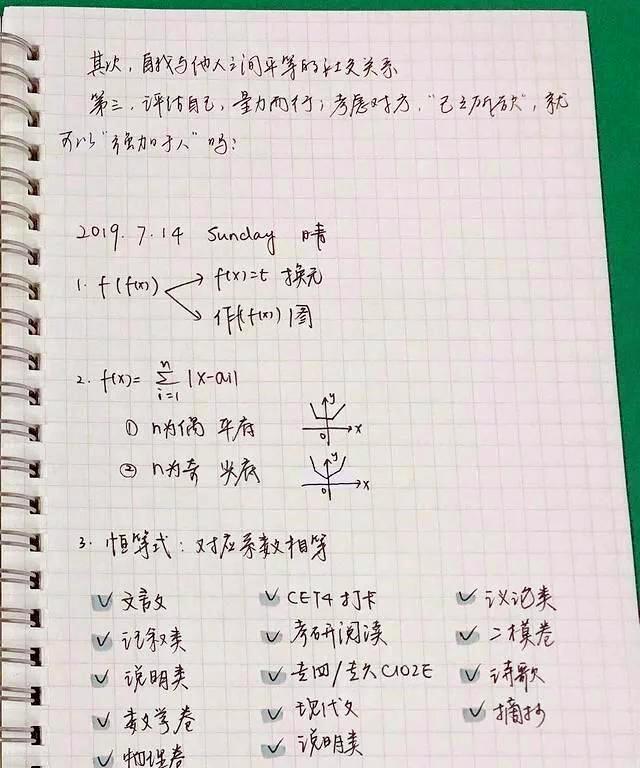 其次，自我与他人之间平等的社交关系
第三，评估自己，量力而行；考虑对方，“己之所欲”，就
可以“强加于人”吗？
2019.7.14 Sunday 晴
1. f(f(x))
f(x)=t 换元
作f(f(x))图
2. f(x)= n∑i=1 |x-ai|
① n为偶 平底
y
0 x
② n为奇 尖底
y
0 x
3. 恒等式：对应系数相等
✓ 文言文 ✓ CET4 打卡 ✓ 议论类
✓ 记叙类 ✓ 考研阅读 ✓ 二模卷
✓ 说明类 ✓ 专四/专八 ✓ 诗歌
✓ 数学卷 ✓ 现代文 ✓ 摘抄
✓ 物理卷 ✓ 说明类